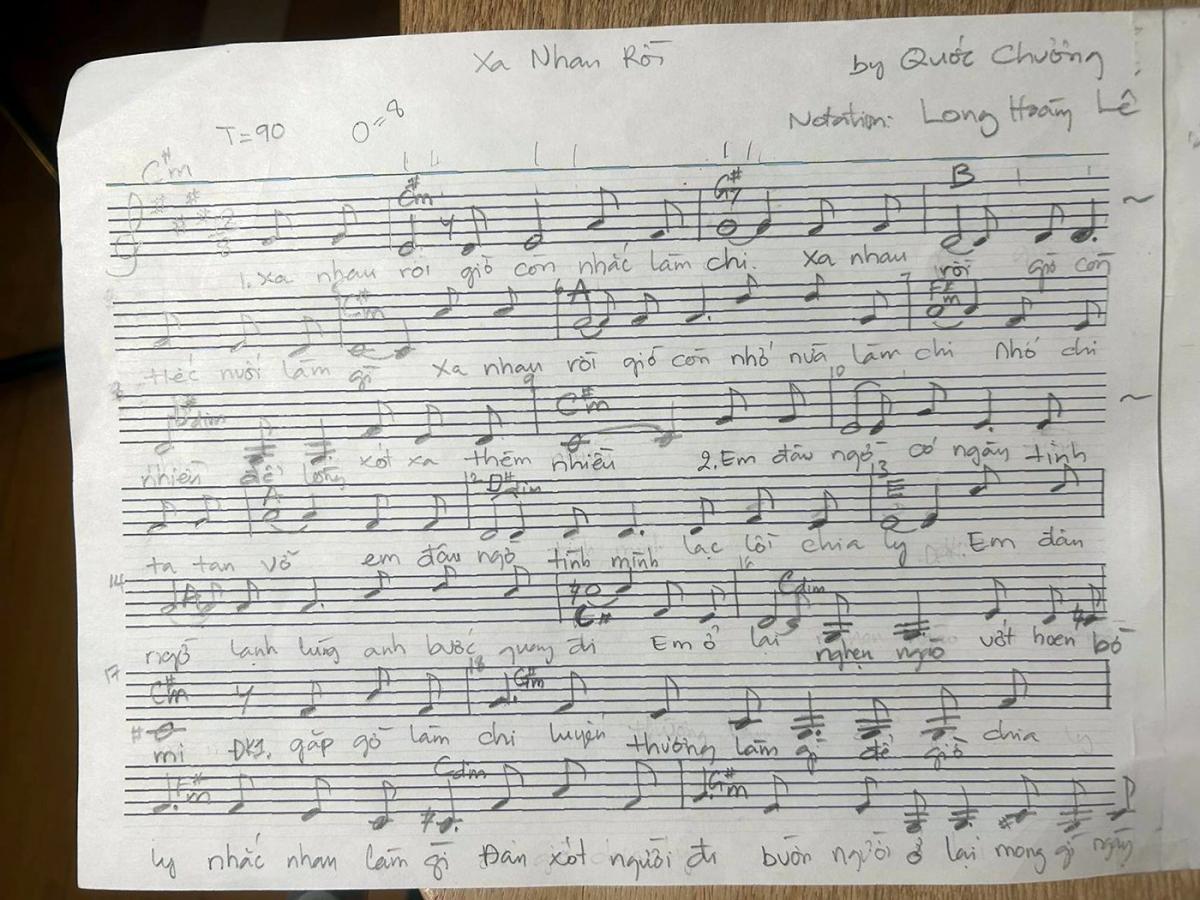 Xa Nhau Rồi
by Quốc Chưởng
T=90 O=8
Notation: Long Hoàng Lê
C#m
C#m G#7 B
1. Xa nhau rồi giờ còn nhắc làm chi. Xa nhau rồi giờ còn
C#m 6 A 7 F#m
tiếc nuối làm gì Xa nhau rồi giờ còn nhớ nữa làm chi Nhớ chi
D#dim 9 C#m 10
nhiều để lòng xót xa thêm nhiều 2. Em đâu ngờ có ngày tình
A 12 D#dim 13 E
ta tan vỡ em đâu ngờ tình mình lạc lối chia ly Em đâu
14 A C# 16 Cdim
ngờ lạnh lùng anh bước quay đi Em ở lại nghẹn ngào ướt hoen bờ
17 C#m 18 G#m
mi ĐK1. gặp gỡ làm chi luyến thương làm gì để giờ chia ly
F#m Cdim G#m
ly nhắc nhau làm gì Đàn xót người đi buồn người ở lại mong gì ngày